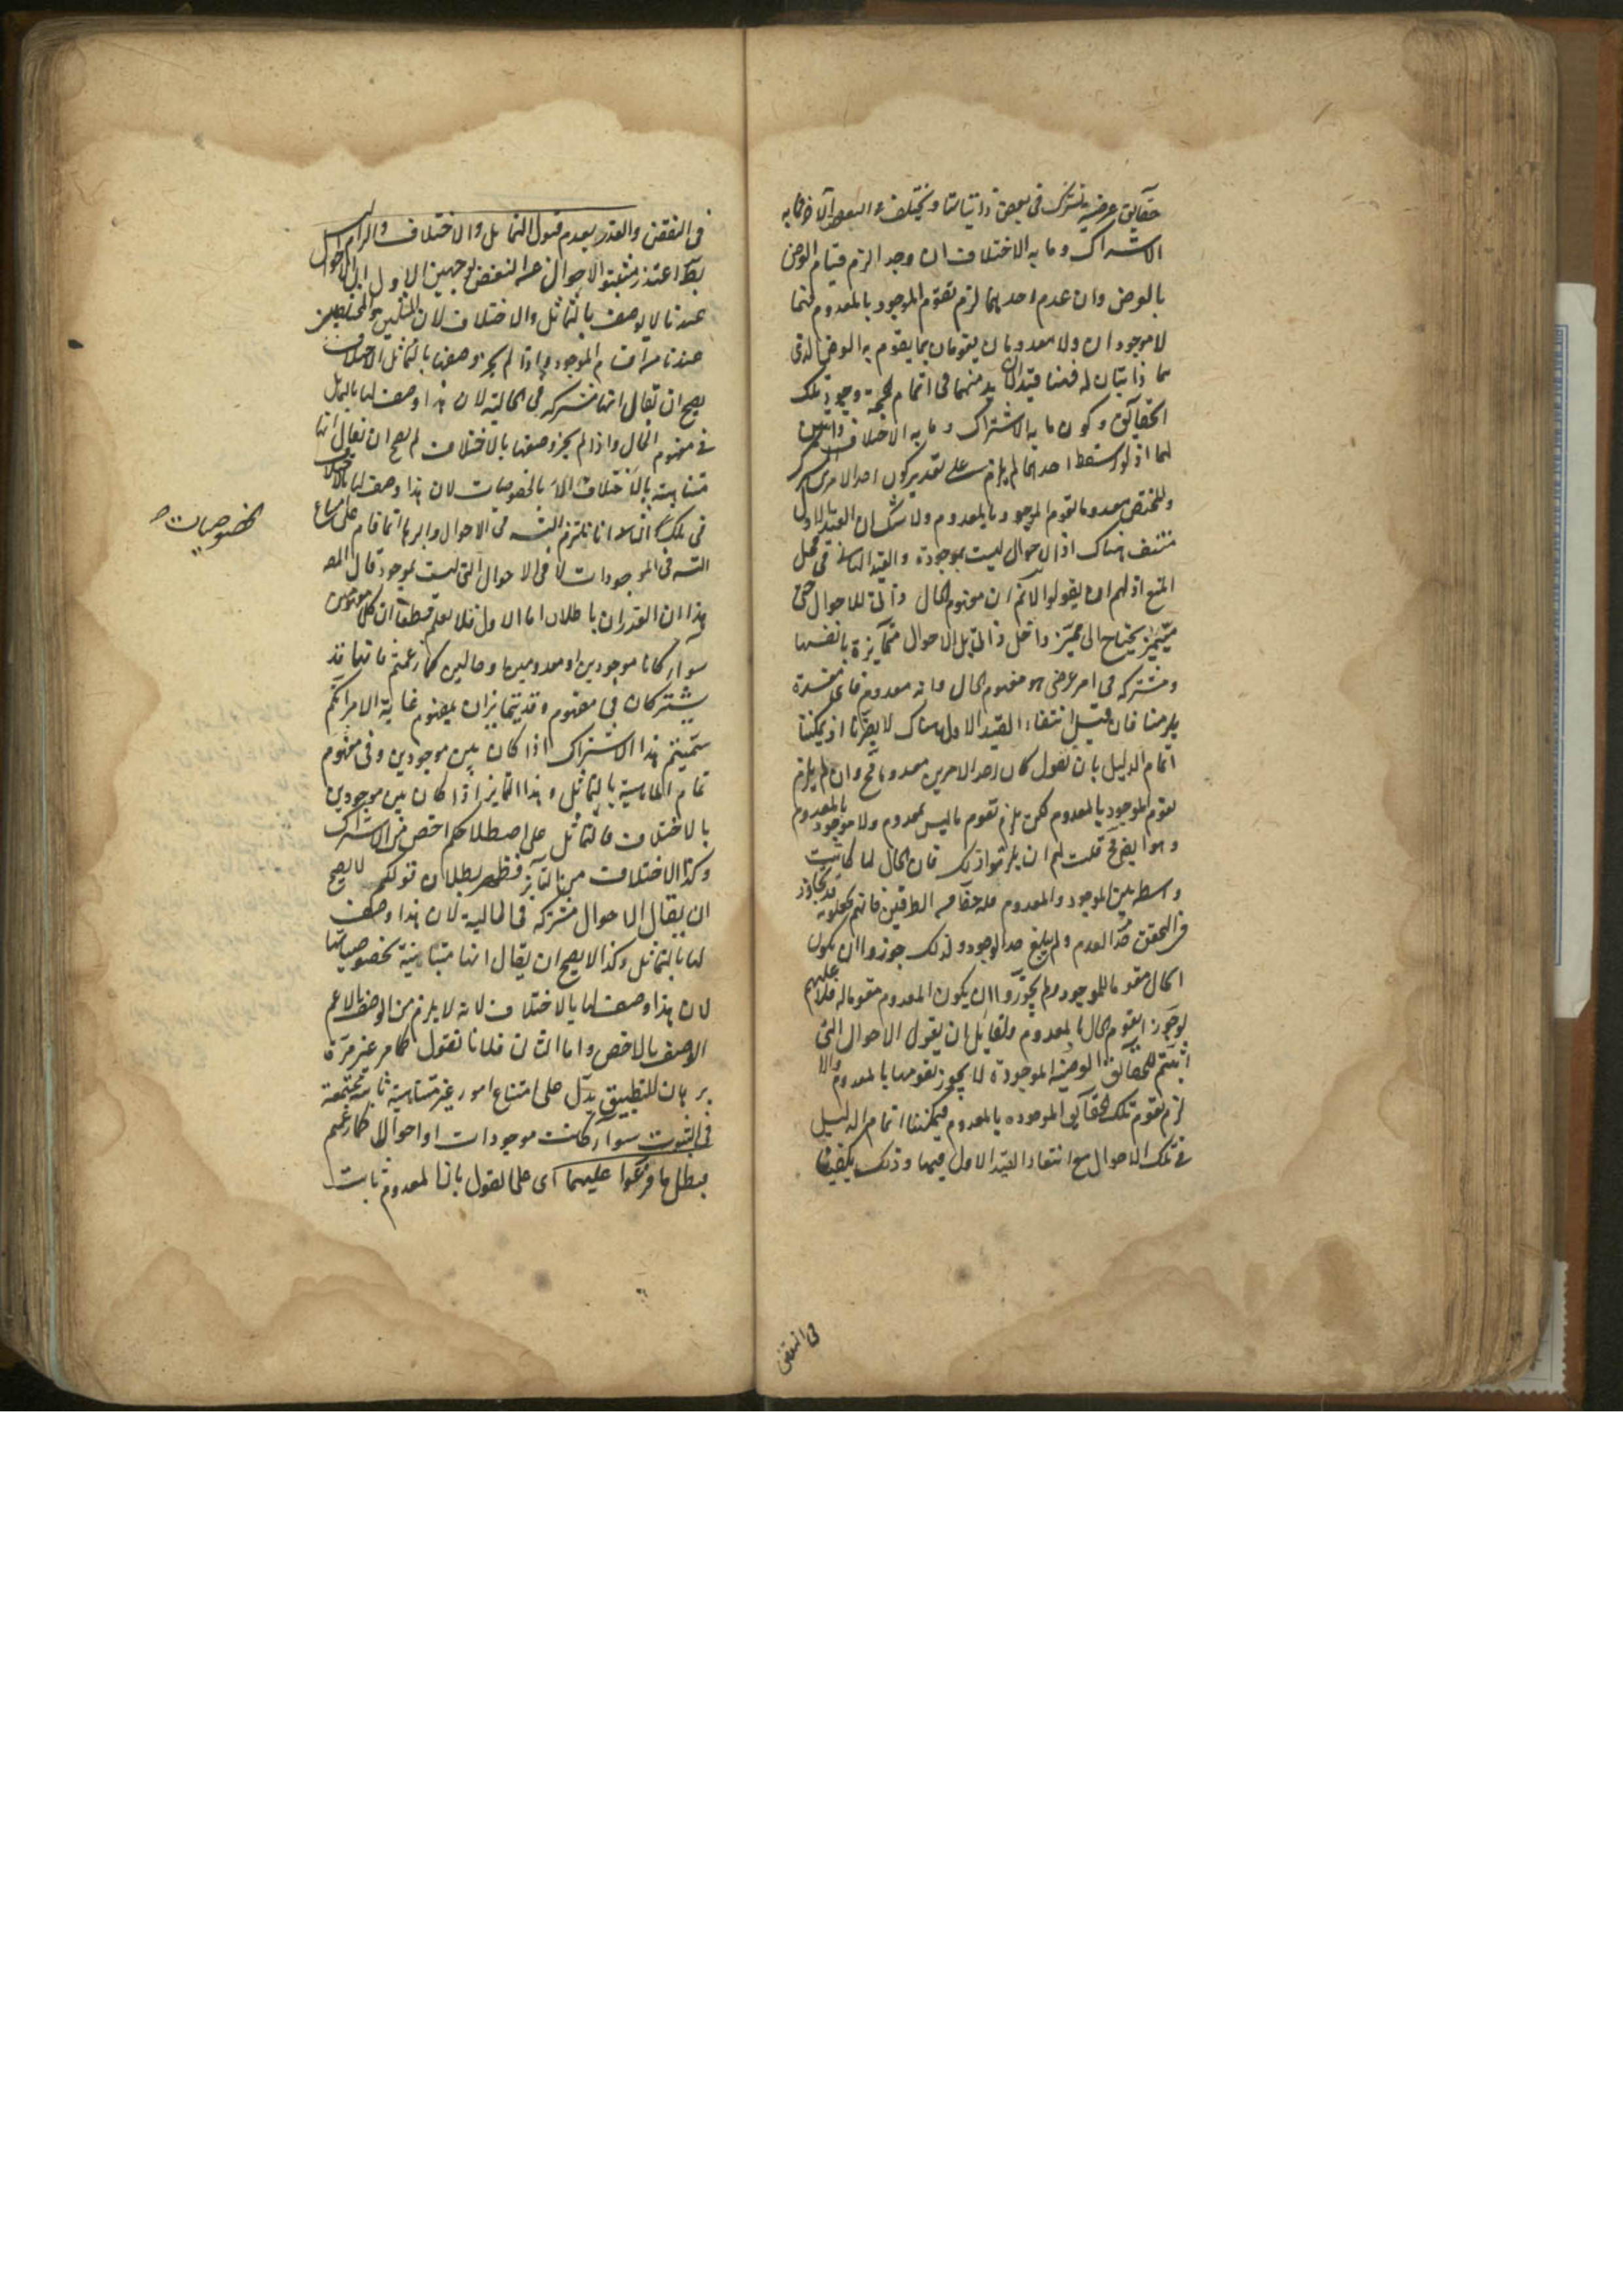 حقايق عرضية تشترك في بعض ذاتياتها وتختلف في البعض الآخر فما به
الاشتراك وما به الاختلاف ان وجدا لزم قيام العرض
بالعرض وان عدم احدهما لزم تقوم الموجود بالمعدوم فهما
لا موجودان ولا معدومان يقومان بما يقوم به العرض الذي
هما ذاتيان له فههنا قيدان لا بد منهما في اتمام الحجة وجود تلك
الحقايق وكون ما به الاشتراك وما به الاختلاف ذاتيين
لها اذ لو سقط احدهما لم يلزم على تقدير كون احد الامرين المشترك
والمختص معدوما تقوم الموجود بالمعدوم ولا شك ان القيد الاول
منتف هناك اذ الاحوال ليست بموجودة والقيد الثاني في محل
المنع اذ لهم ان يقولوا لا نم ان مفهوم الحال ذاتي للاحوال حتى
يحتاج الى مميز داخل ذاتي بل الاحوال متمايزة بانفسها
ومشتركة في امر عرضي هو مفهوم الحال وانه معدوم فاي مفسدة
يلزمنا فان قيل انتفاء القيد الاول هناك لا يضرنا اذ يمكننا
اتمام الدليل بان نقول كان احد الامرين معدوما فح وان لم يلزم
تقوم الموجود بالمعدوم لكن يلزم تقوم ما ليس بمعدوم ولا موجود بالمعدوم
وهو ايضا مح قلت لهم ان يلتزموا ذلك فان الحال لما كانت
واسطة بين الموجود والمعدوم فله حظ من الطرفين فانهم يجعلونه قد تجاوز
في التحقق حد العدم ولم يبلغ حد الوجود ولذلك جوزوا ان يكون
الحال مقوما للموجود ولم يجوزوا ان يكون المعدوم مقوما له فلا عليهم
لو جوز تقوم الحال بالمعدوم ولقائل ان يقول الاحوال التي
اثبتم للحقائق العرضية الموجودة لا يجوز تقومها بالمعدوم والا
لزم تقوم تلك الحقايق الموجوده بالمعدوم فيمكننا اتمام الدليل
في تلك الاحوال مع انتفاء القيد الاول فيها وذلك يكفينا
في النقض
في النقض والعذر بعدم قبول التماثل والاختلاف والزام التس
بط اعتذر مثبتو الاحوال عن النقض بوجهين الاول ان الاحوال
عندنا لا يوصف بالتماثل والاختلاف لان المثلين والمختلفين
عندنا من اقسام الموجود واذا لم يجز وصفها بالتماثل والاختلاف
يصح ان تقال انها مشتركة في الحالية لان هذا وصف لها بالتماثل
في مفهوم الحال واذا لم يجز وصفها بالاختلاف لم يصح ان تقال انها
متباينة بالخصوصيات لان هذا وصف لها بالاختلاف
في تلك الخصوصيات
الثاني انا نلتزم التس في الاحوال والبرهان انما قام على امتناع
التس في الموجودات لا في الاحوال التي ليست بموجود قال المص
هذان العذران باطلان اما الاول فلانا نعلم قطعا ان كل مفهومين
سواء كانا موجودين او معدومين او حالين كما زعمتم فانهما قد
يشتركان في مفهوم وقد يتمايزان بمفهوم غاية الامر انكم
سميتم هذا الاشتراك اذا كان بين موجودين وفي مفهوم
تمام الماهية بالتماثل وهذا التمايز اذا كان بين موجودين
بالاختلاف فالتماثل على اصطلاحكم اخص من الاشتراك
وكذا الاختلاف من التمايز فظهر بطلان قولكم لا يصح
ان يقال الاحوال مشتركة في الحالية لان هذا وصف
لها بالتماثل وكذا لا يصح ان يقال انها متباينة بخصوصياتها
لان هذا وصف لها بالاختلاف لانه لا يلزم من الوصف بالاعم
الوصف بالاخص واما الثاني فلانا نقول كما مر غير مرة
برهان التطبيق يدل على امتناع امور غير متناهية ثابتة مجتمعة
في الثبوت سواء كانت موجودات او احوالا كما زعمتم
فبطل ما فرعوا عليهما اي على القول بان المعدوم ثابت